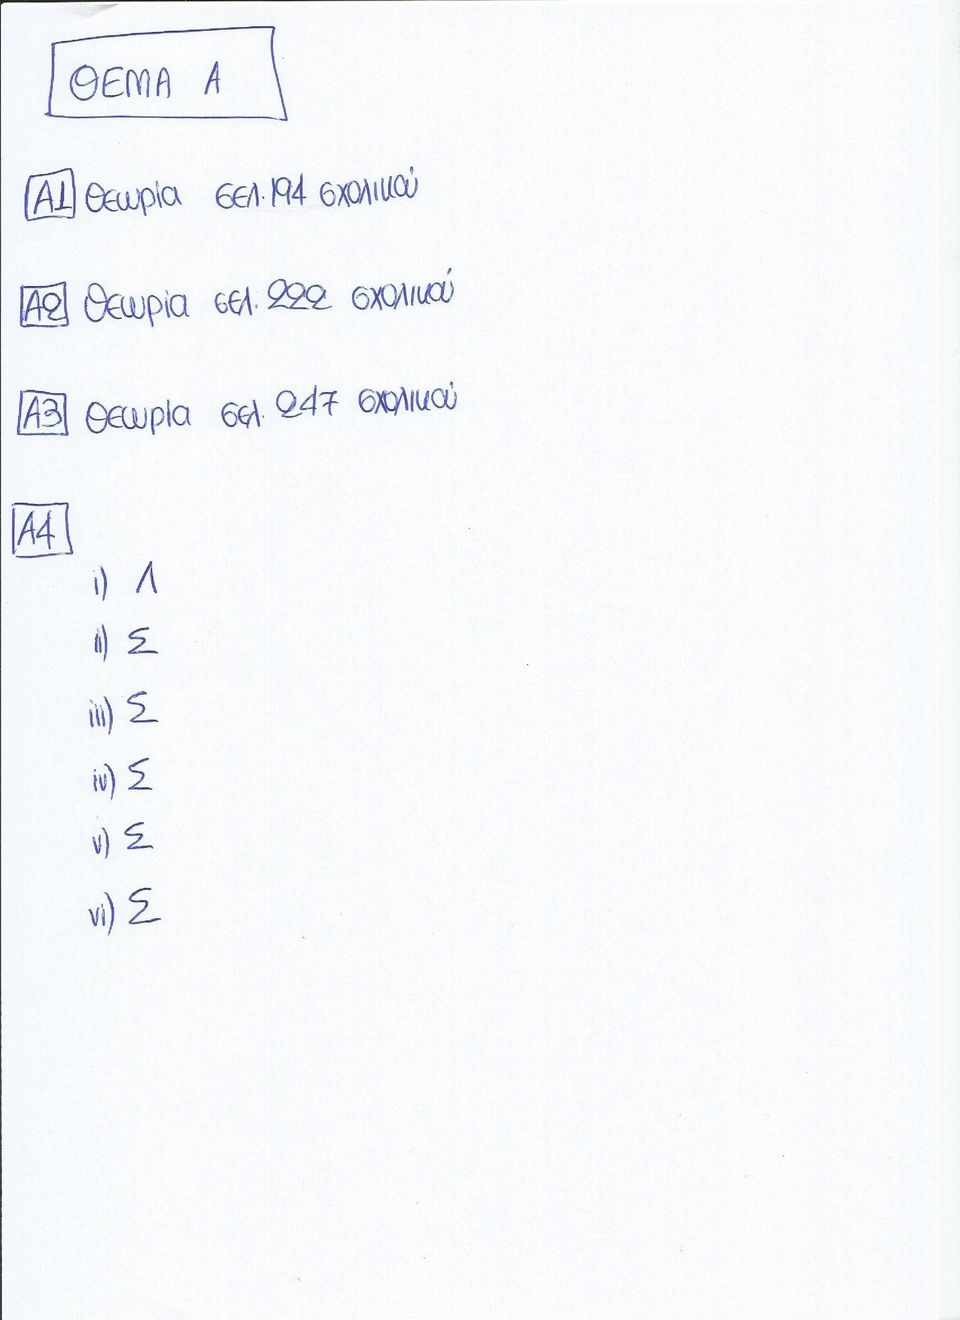 ΘΕΜΑ Α
Α1 Θεωρία σελ. 194 σχολικού
Α2 Θεωρία σελ. 222 σχολικού
Α3 Θεωρία σελ. 247 σχολικού
Α4
i) Λ
ii) Σ
iii) Σ
iv) Σ
v) Σ
vi) Σ